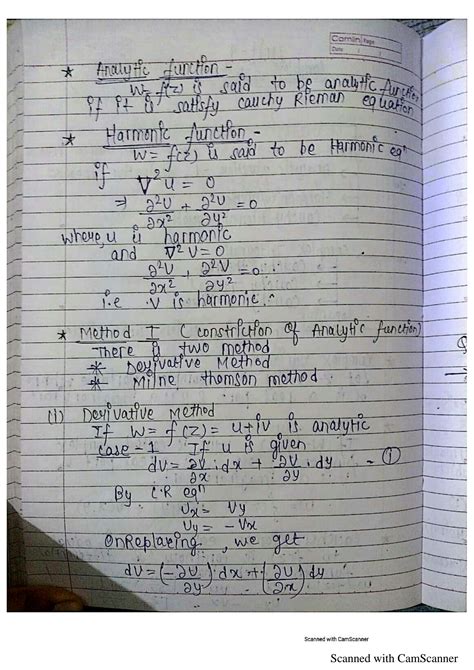 Camlin Page
Date / /
* Analytic function -
W= f(z) is said to be analytic function
if it is satisfy cauchy Rieman equation
* Harmonic function -
W= f(z) is said to be Harmonic eqn
if ∇²u = 0
⇒ ∂²U/∂x² + ∂²U/∂y² = 0
where, u is harmonic
and ∇²V = 0
∂²V/∂x² + ∂²V/∂y² = 0
i.e V is harmonic.
* Method I (constriction of Analytic function)
There is two method
* Derivative Method
* Milne thomson method.
(1) Derivative Method
If W = f(z) = u+iv is analytic
case - 1 If u is given
dv = ∂V/∂x . dx + ∂V/∂y . dy - ①
By C.R eqn
Ux = Vy
Uy = - Vx
On Replacing, we get
dV = (-∂U/∂y) dx + (∂U/∂x) dy
Scanned with CamScanner
Scanned with CamScanner